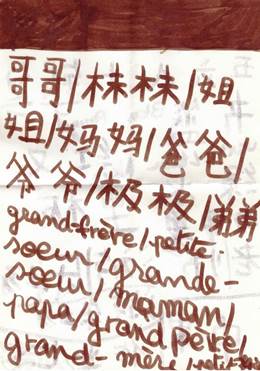 哥哥/枺枺/姐
姐/妈妈/爸爸/
爷爷/极极/弟弟
grand-frère/petite-
soeur/grande-
soeur/maman/
papa/grand père/
grand-mère/petit-frère